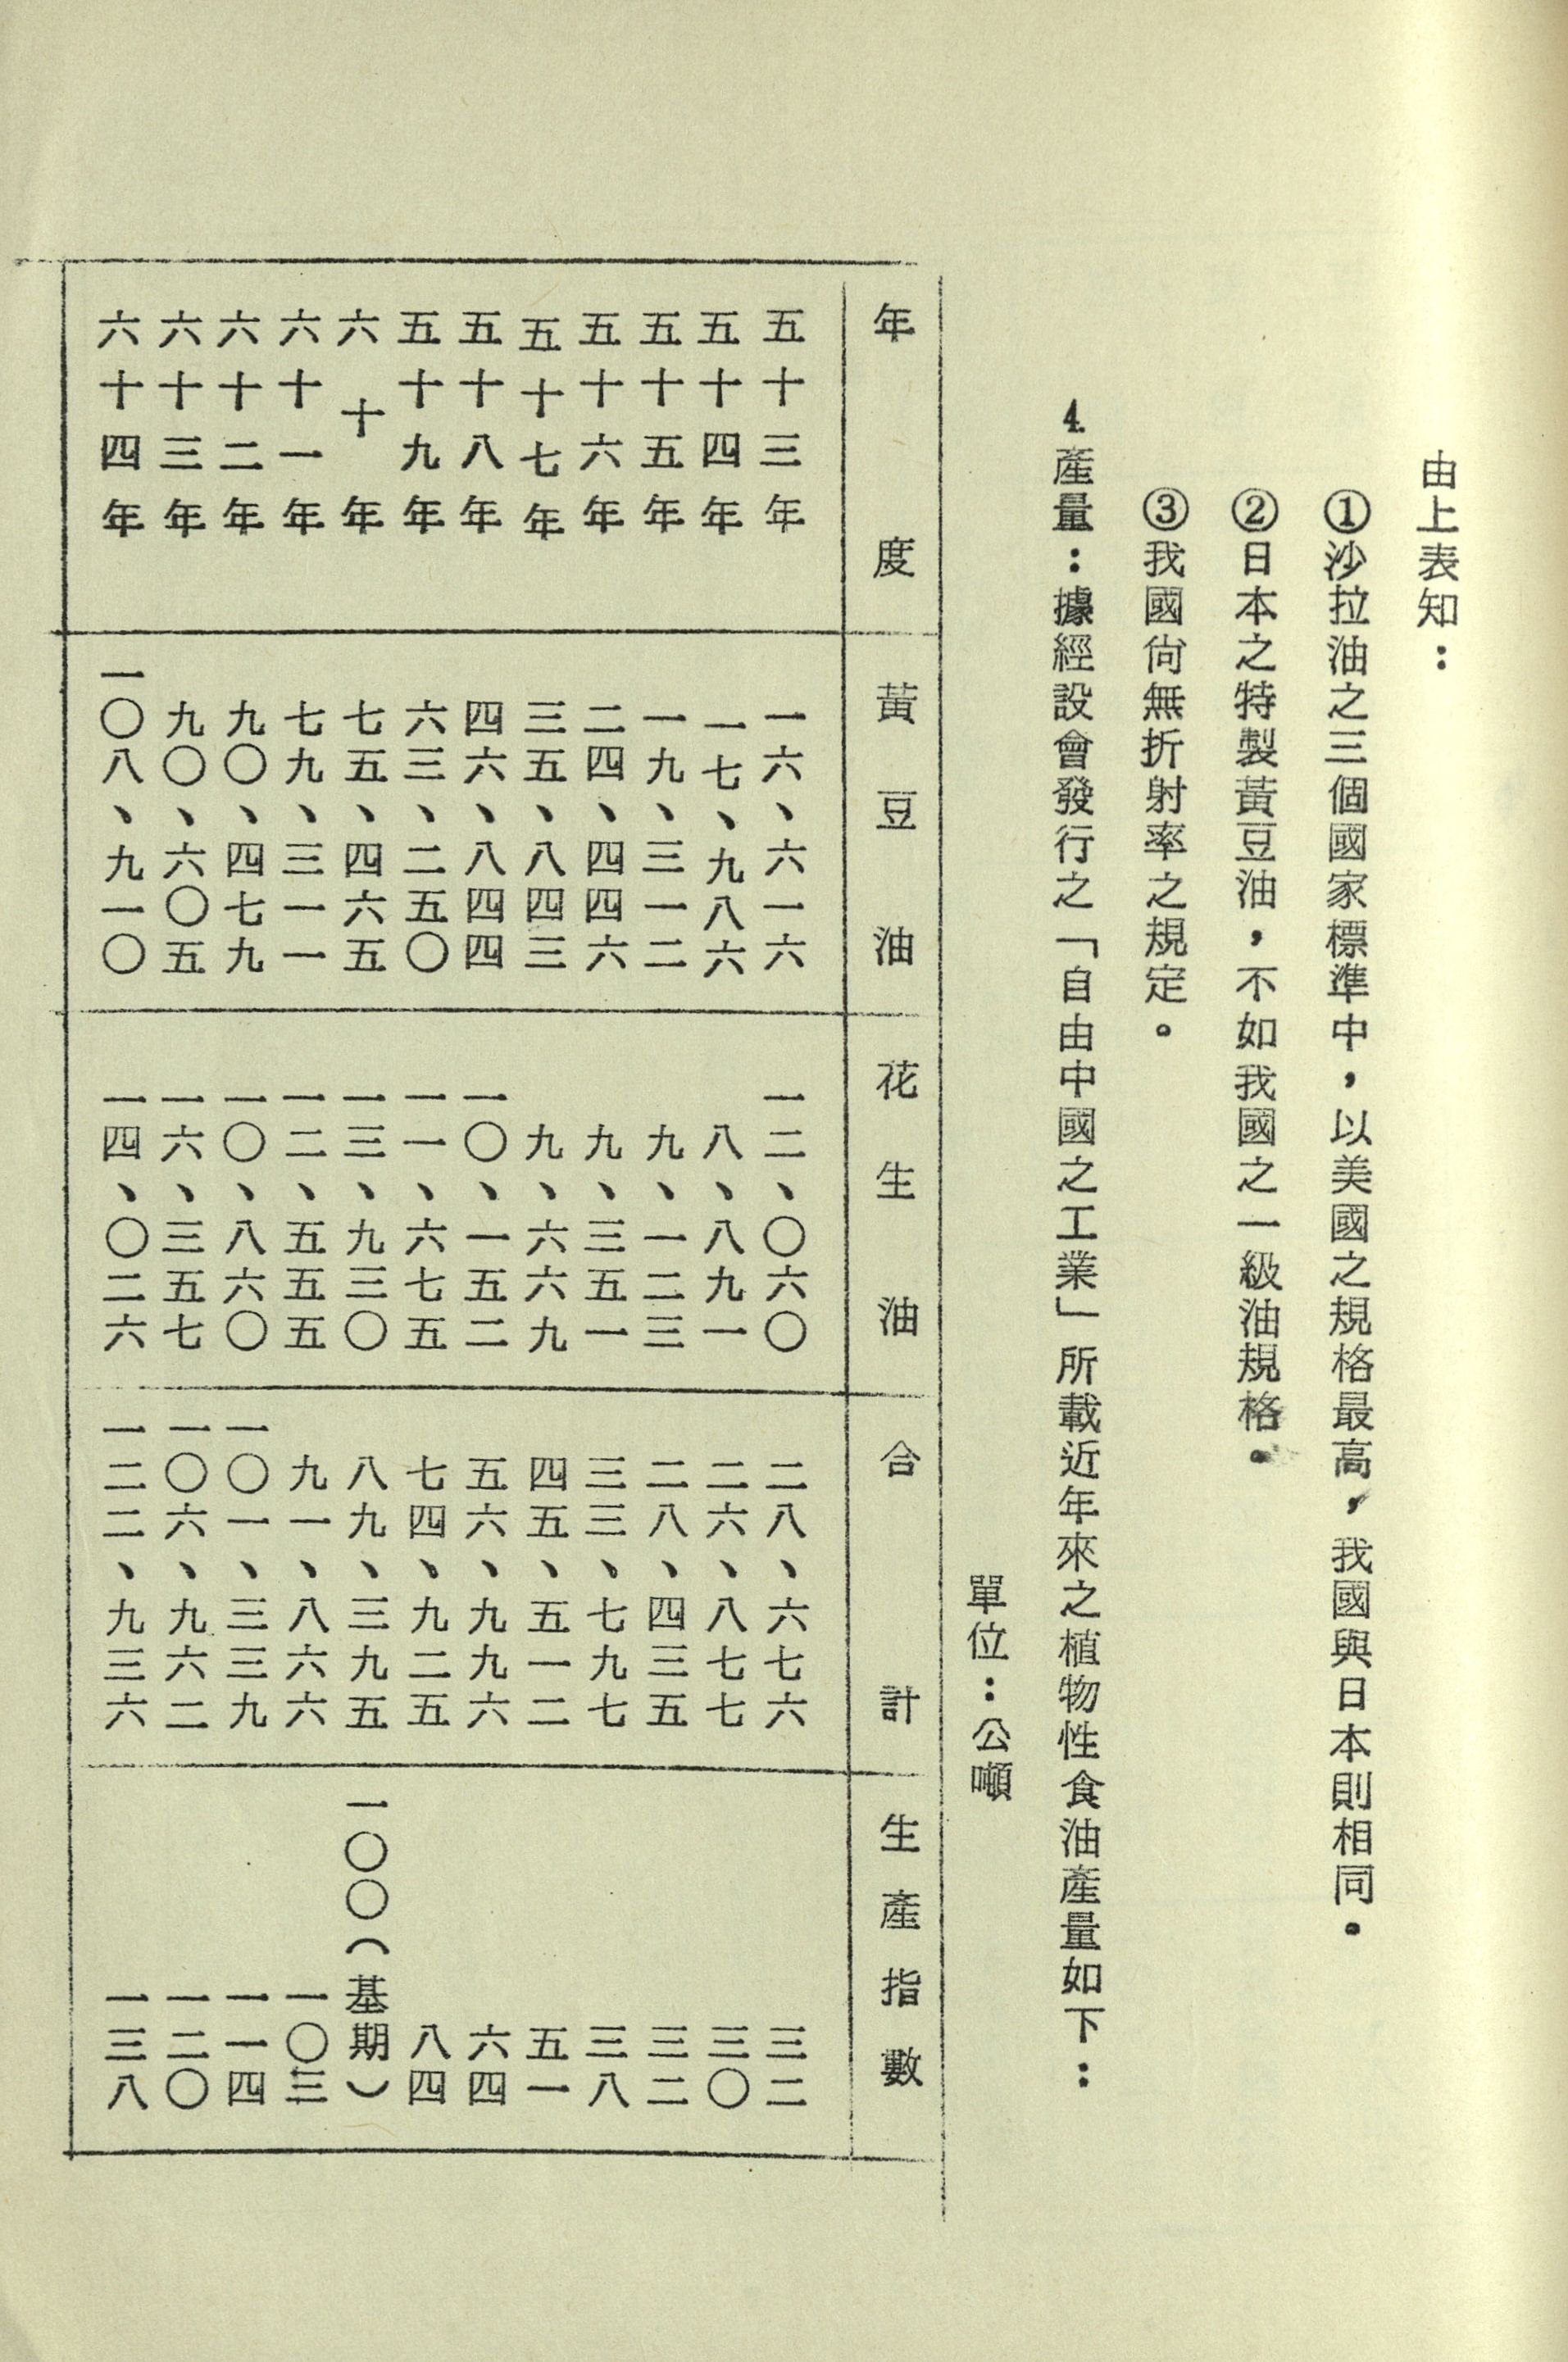 由上表知：
①沙拉油之三個國家標準中，以美國之規格最高，我國與日本則相同。
②日本之特製黃豆油，不如我國之一級油規格。
③我國尙無折射率之規定。
4.產量：據經設會發行之「自由中國之工業」所載近年來之植物性食油產量如下：
單位：公噸
年度　黃豆油　花生油　合計　生產指數
五十三年　一六、六一六　一二、〇六〇　二八、六七六　三二
五十四年　一七、九八六　八、八九一　二六、八七七　三〇
五十五年　一九、三一二　九、一二三　二八、四三五　三二
五十六年　二四、四四六　九、三五一　三三、七九七　三八
五十七年　三五、八四三　九、六六九　四五、五一二　五一
五十八年　四六、八四四　一〇、一五二　五六、九九六　六四
五十九年　六三、二五〇　一一、六七五　七四、九二五　八四
六十年　七五、四六五　一三、九三〇　八九、三九五　一〇〇（基期）
六十一年　七九、三一一　一二、五五五　九一、八六六　一〇三
六十二年　九〇、四七九　一〇、八六〇　一〇一、三三九　一一四
六十三年　九〇、六〇五　一六、三五七　一〇六、九六二　一二〇
六十四年　一〇八、九一〇　一四、〇二六　一二二、九三六　一三八